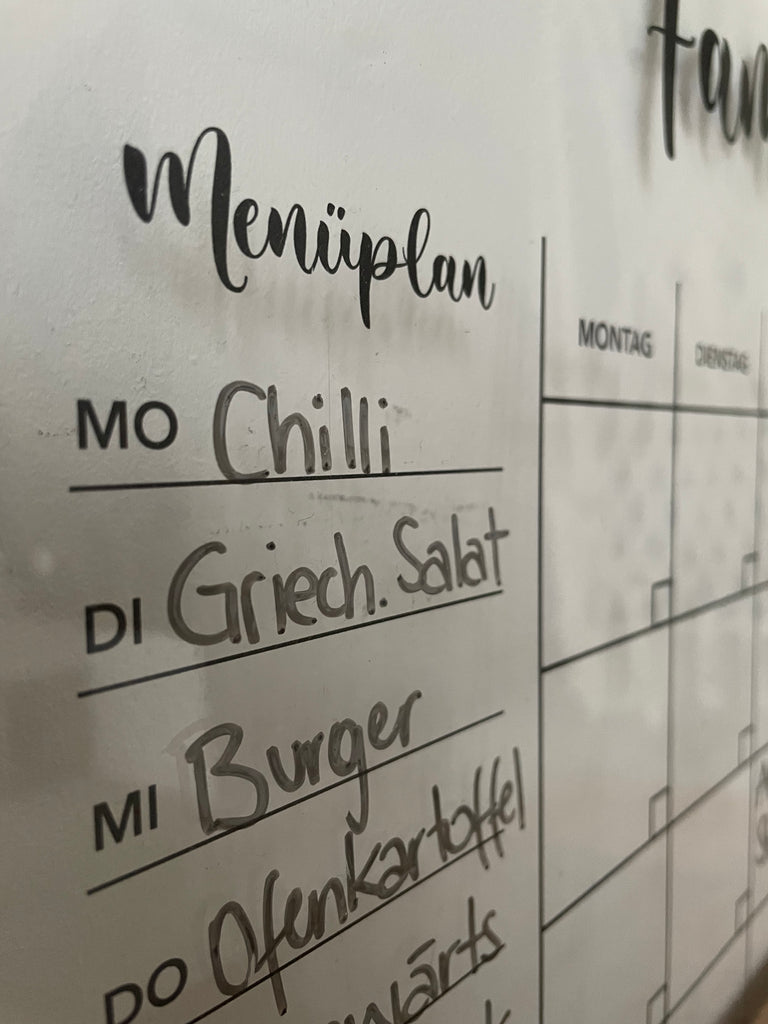 Menüplan
MO Chilli
DI Griech. Salat
MI Burger
DO Ofenkartoffel
MONTAG DIENSTAG